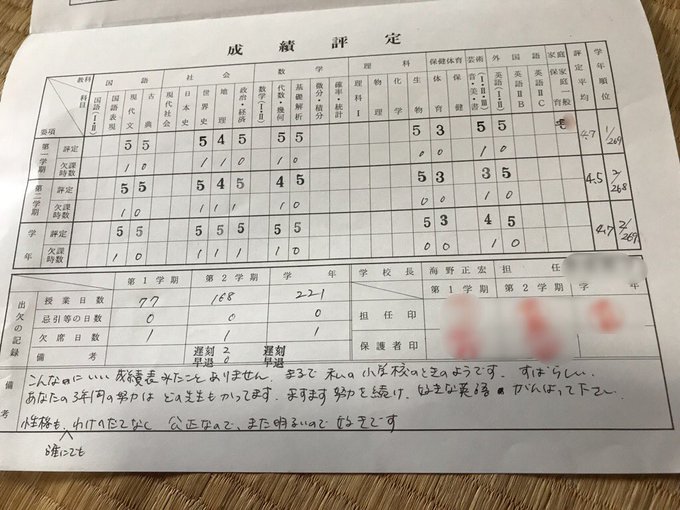 成績評定
教科 国語 社会 数学 理科 保健体育 芸術 外国語 家庭 評定平均 学年順位
科目 国語(I・II) 国語表現 現代文 古典 現代社会 日本史 世界史 地理 政治・経済 数学(I・II) 代数・幾何 基礎解析 微分・積分 確率・統計 理科I 物理 化学 生物 体育 保健 音・美・書(I・II・III) 英語(I・II) 英語IIB 英語IIC 家庭一般
要項
第一学期 評定 5 5 5 4 5 5 5 5 3 5 5 4.7 1/269
欠課時数 1 0 1 1 0 1 0 0 0 1 0
第二学期 評定 5 5 5 4 5 4 5 5 3 3 5 4.5 2/268
欠課時数 1 0 1 1 1 1 0 0 0 1 0
学年 評定 5 5 5 5 5 5 5 5 3 4 5 4.7 2/269
欠課時数 1 0 1 1 1 1 0 0 0 1 0
出欠の記録 第1学期 第2学期 学年
授業日数 77 168 221
忌引等の日数 0 0 0
欠席日数 1 1 1
備考 遅刻 2 早退 0 遅刻 早退
学校長 海野正宏 担任
第1学期 第2学期 学年
担任印
保護者印
備考
こんなにいい成績表みたことありません。まるで私の小学校のときのようです。すばらしい。
あなたの3年間の努力はどの先生もかってます。ますます努力を続け、好きな英語がんばって下さい。
性格も、誰にでもわけへだてなく公正なので、また明るいので好きです